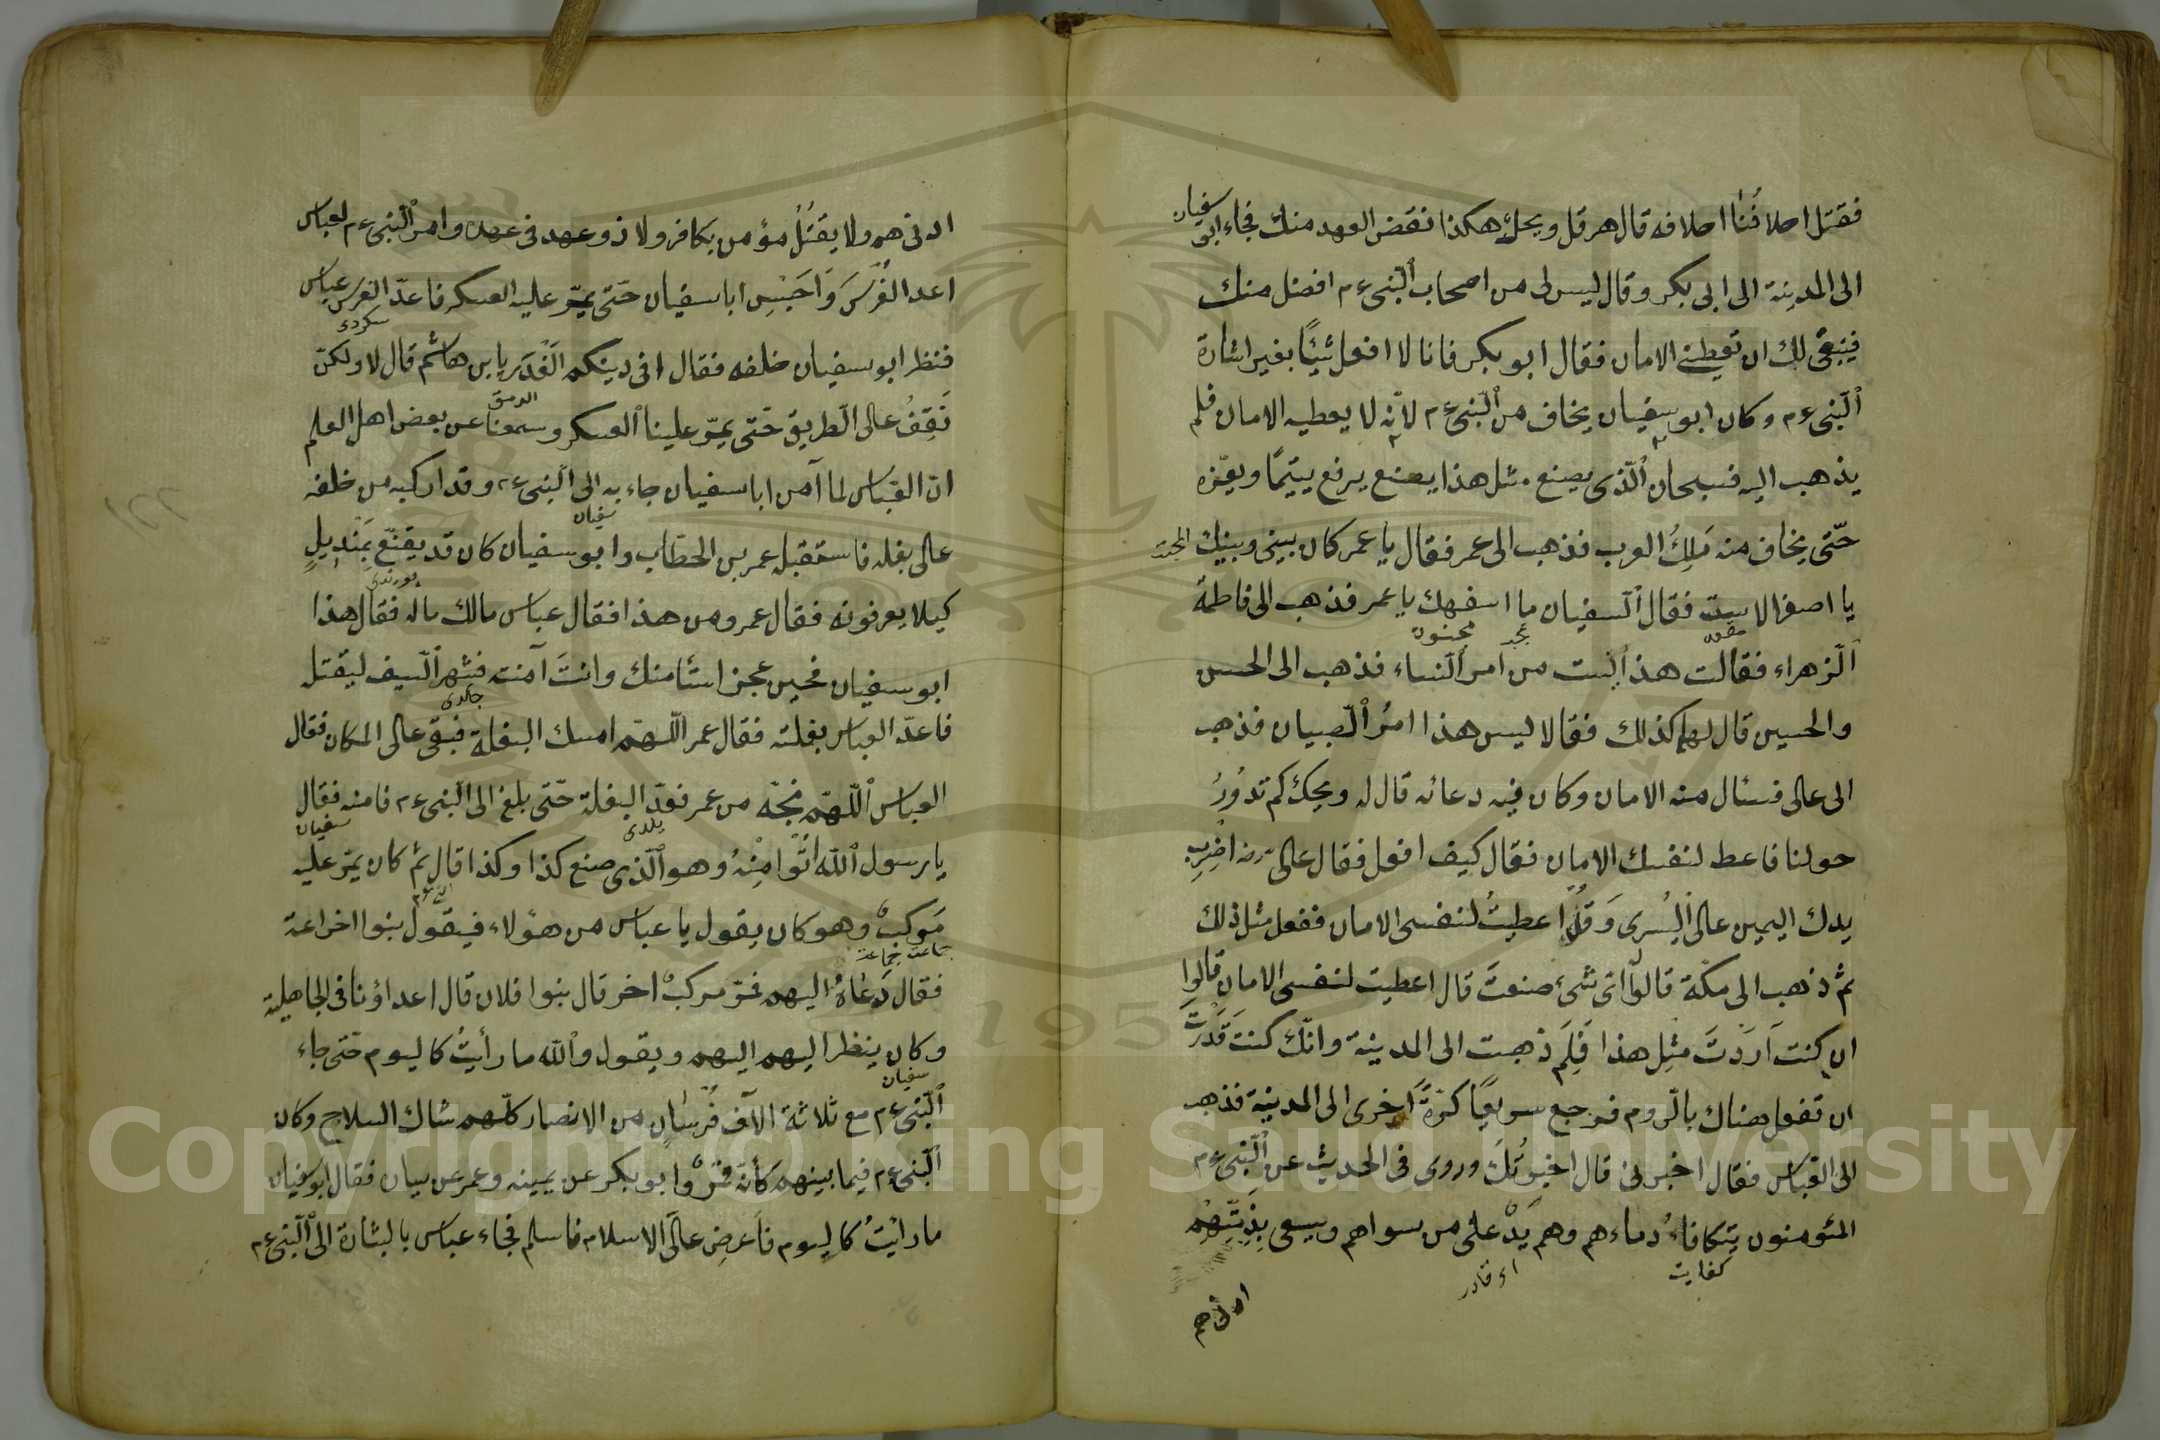 فقتل احلافُنا احلافه قال هرقل ويحك هكذا نقض العهد منك فجاء ابو سفيان
الى المدينة الى ابى بكر وقال ليس لى من اصحاب النبى ءم افضل منك
فينبغى لك ان تعطينى الامان فقال ابو بكر فانا لا افعل شيئًا بغير اشارة
النبى ءم وكان ابو سفيان يخاف من النبى ءم لانه لا يعطيه الامان فلم
يذهب اليه فسبحان الذى يصنع مثل هذا يصنع يرفع يتيمًا ويعزه
حتى يخاف منه مَلِكُ العرب فذهب الى عمر فقال يا عمر كان بينى وبينك
يا اصفر الاست فقال السفيان ما اسفهك يا عمر فذهب الى فاطمة
مقعد مجنون
الزهراء فقالت هذا ليست من امر النساء فذهب الى الحسن
والحسين قال لهما كذلك فقالا ليس هذا امرُ الصبيان فذهب
الى عالى فسئال منه الامان وكان فيه دعائه قال له ويحك كم تدُورُ
حولنا فاعط لنفسك الامان فقال كيف افعل فقال عالى رضه اضرِب
يدك اليمين عالى اليُسرى وَقُل اعطيتُ لنفسى الامان ففعل مثل ذلك
ثم ذهب الى مكة قالوا اى شئ صنعتَ قال اعطيت لنفسى الامان قالوا
ان كنت اَرَدْتَ مثِل هذا فَلِمَ ذهبت الى المدينة وانك كنت قَدَرْتَ
ان تفعل هناك بالروم فرجع سريعًا كرّةً اُخرى الى المدينة فذهب
الى العباس فقال اخبرنى قال اخبرتُكَ وروى فى الحديث عن النبى ءم
المئومنون يتكافاءُ دماءهم وهم يَدٌ على من سواهم ويسعى بِذِمّتِهِم
كفايت اى قادر
ادنى هم
ادنى هم ولا يقتُلُ مؤمن بكافر ولا ذو عهد فى عهده وامر النبى ءم لعباس
اعد الفَرَسَ وَاَحْبِس ابا سفيان حتى يمرّ عليه العسكر فاعدّ الفرس عباس
سكردى
فنظر ابو سفيان خلفه فقال افى دينكم الغَدَر يا بن هاشم قال لا ولكن
نَقِفُ عالى الطريق حَتى يمرّ علينا العسكر وسمعنا عن بعض اهل العلم
ان العباس لما آمن ابا سفيان جاء به الى النبى ءم وقد اركبه من خلفه
سفيان
عالى بغله فاستقبله عمر بن الخطاب وابو سفيان كان قد يقنّع بمَنْدِيلٍ
كيلا يعرفونه فقال عمر ومن هذا فقال عباس مالك ماله فقال هذا
ابو سفيان فحين عجز استامنك وانتَ آمنته فشهر السيف ليقتله
چالدى
فاعدّ العباس بغلته فقال عمر اللهم امسك البغلة فبقى عالى المكان فقال
العباس اللهم نجّه من عمر فعدّ البغلة حتى بلغ الى النبى ءم فامنه فقال
يلدى سفيان
يا رسول الله اتّوا مِنْهُ وهو الذى صنع كذا وكذا قال ثم كان يمرّ عليه
مَوكبٌ وهو كان يقول يا عباس من هؤلاء فيقول بنوا اخزاعة
جماعت
فقال دعَاهُ اليهم فمرّ مركبٌ اخر قال بنوا فلان قال اعداؤنا فى الجاهلية
وكان ينظر اليهم اليهم ويقول والله ما رأيتُ كاليوم حتى جاء
سفيان
النبى ءم مع ثلاثة الآف فُرْسَانٍ من الانصار كلّهم شاك السلاح وكان
النبى ءم فيما بينهم كأنه قمرٌ وابو بكر عن يمينه وعمر عن يسان فقال ابو سفيان
ما رايْتُ كاليوم فاَعرِض عالَىّ الاسلام فاسلم فجاء عباس بالبشارة الى النبى ءم